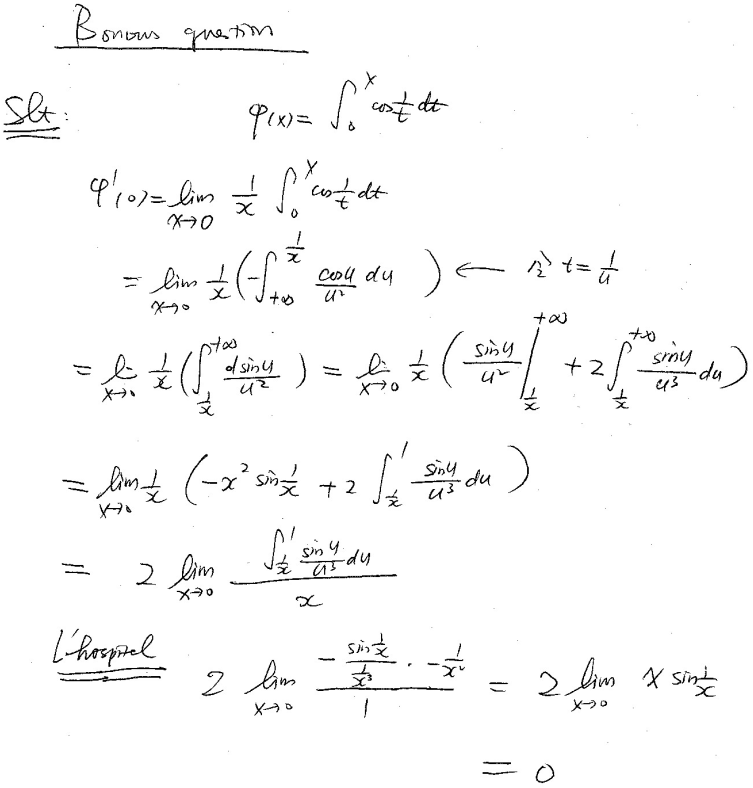 Bonous question
Slt: φ(x) = ∫₀ˣ cos 1/t dt
φ'(0) = lim_{x→0} 1/x ∫₀ˣ cos 1/t dt
= lim_{x→0} 1/x (-∫_{+∞}^{1/x} cosu/u² du) ← 令 t = 1/u
= li_{x→0} 1/x (∫_{1/x}^{+∞} dsinu/u²) = li_{x→0} 1/x (sinu/u² |_{1/x}^{+∞} + 2∫_{1/x}^{+∞} sinu/u³ du)
= lim_{x→0} 1/x (-x² sin 1/x + 2∫_{1/x}^{1} sinu/u³ du)
= 2 lim_{x→0} ∫_{1/x}^{1} sinu/u³ du / x
L'hospital 2 lim_{x→0} (- sin 1/x / 1/x³ · - 1/x²) / 1 = 2 lim_{x→0} x sin 1/x
= 0